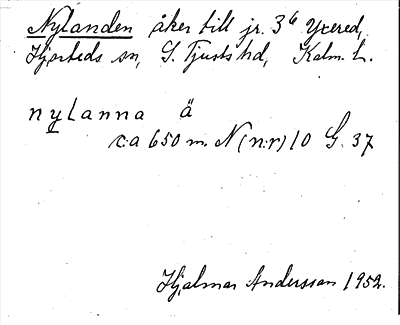 Nylanden åker till jr. 3⁶ Yxered,
Hjorteds sn, S. Tjusts hd, Kalm. L.
nylanna ä
ca 650 m. N (n:r) 10 G. 37
Hjalmar Andersson 1952.